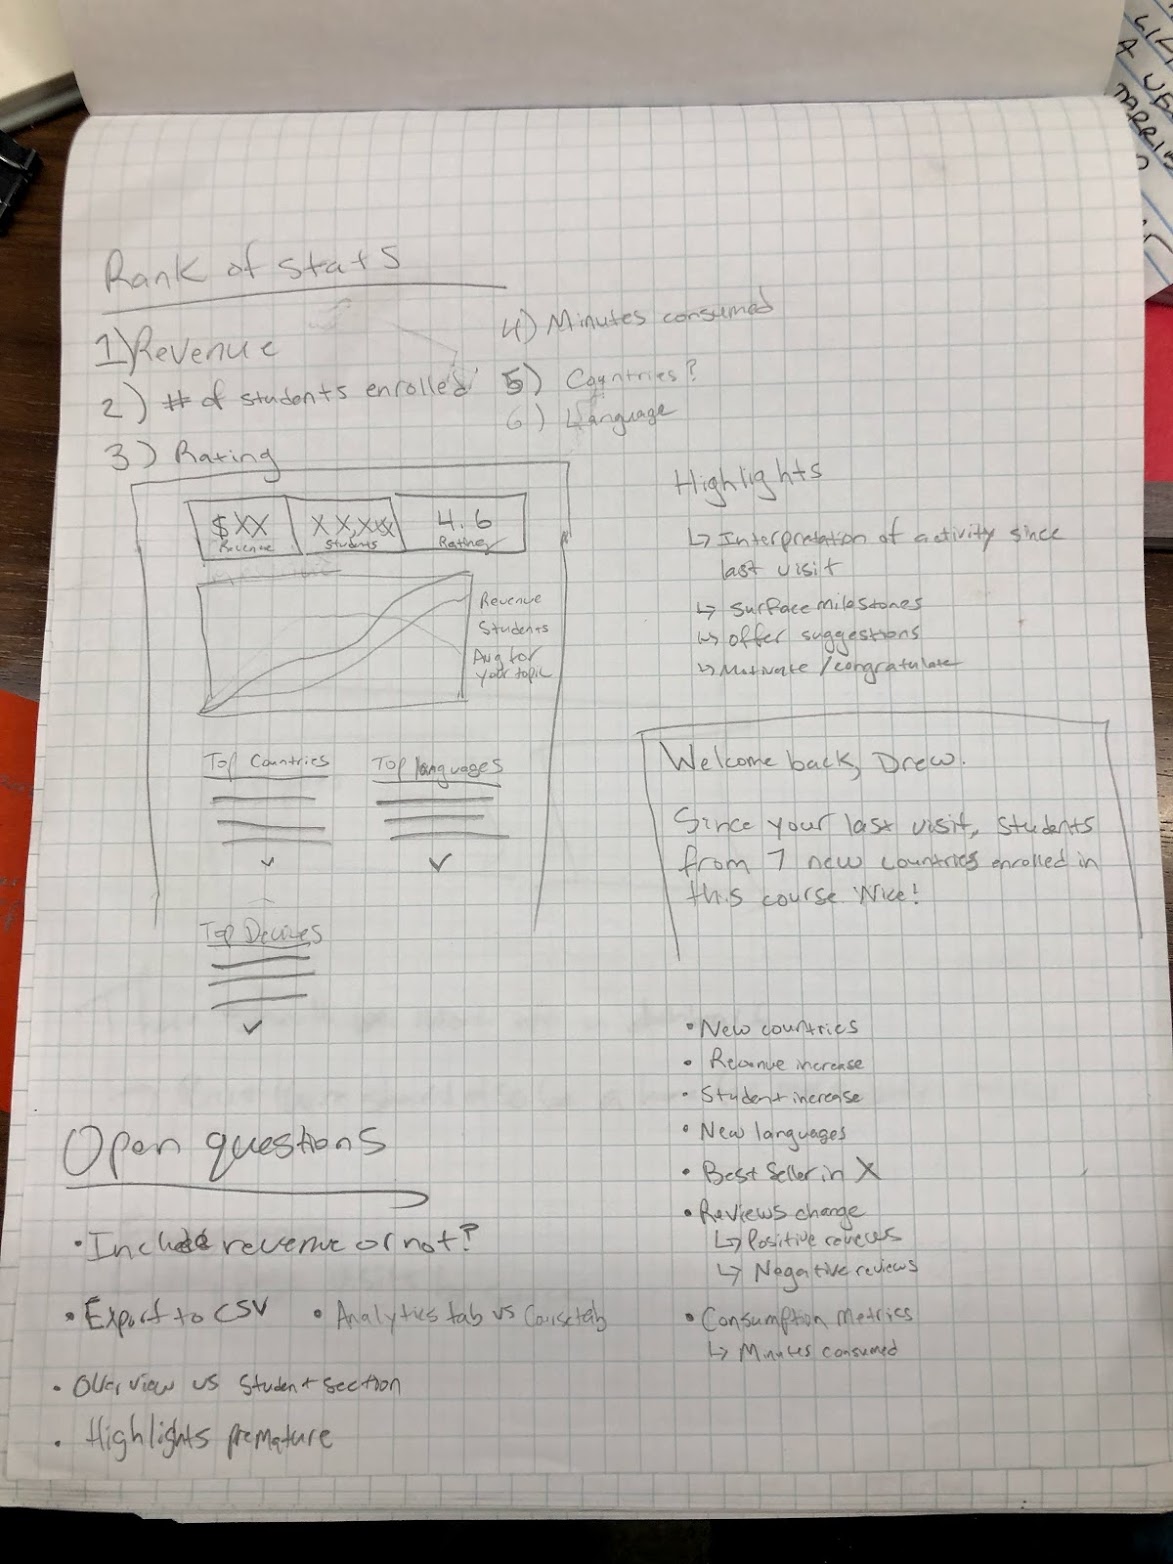 Rank of Stats
1) Revenue
2) # of students enrolled
3) Rating
4) Minutes consumed
5) Countries?
6) Language
$XX
Revenue
XX,XXX
Students
4.6
Rating
Revenue
Students
Avg for
your topic
Top Countries
Top languages
Top Devices
Highlights
↳ Interpretation of activity since
last visit
↳ Surface milestones
↳ offer suggestions
↳ Motivate / congratulate
Welcome back, Drew.
Since your last visit, students
from 7 new countries enrolled in
this course. Nice!
• New countries
• Revenue increase
• Student increase
• New languages
• Best Seller in X
• Reviews change
↳ Positive reviews
↳ Negative reviews
• Consumption Metrics
↳ Minutes consumed
Open questions
• Include revenue or not?
• Export to CSV
• Analytics tab vs Course tab
• Overview vs Student section
• Highlights premature